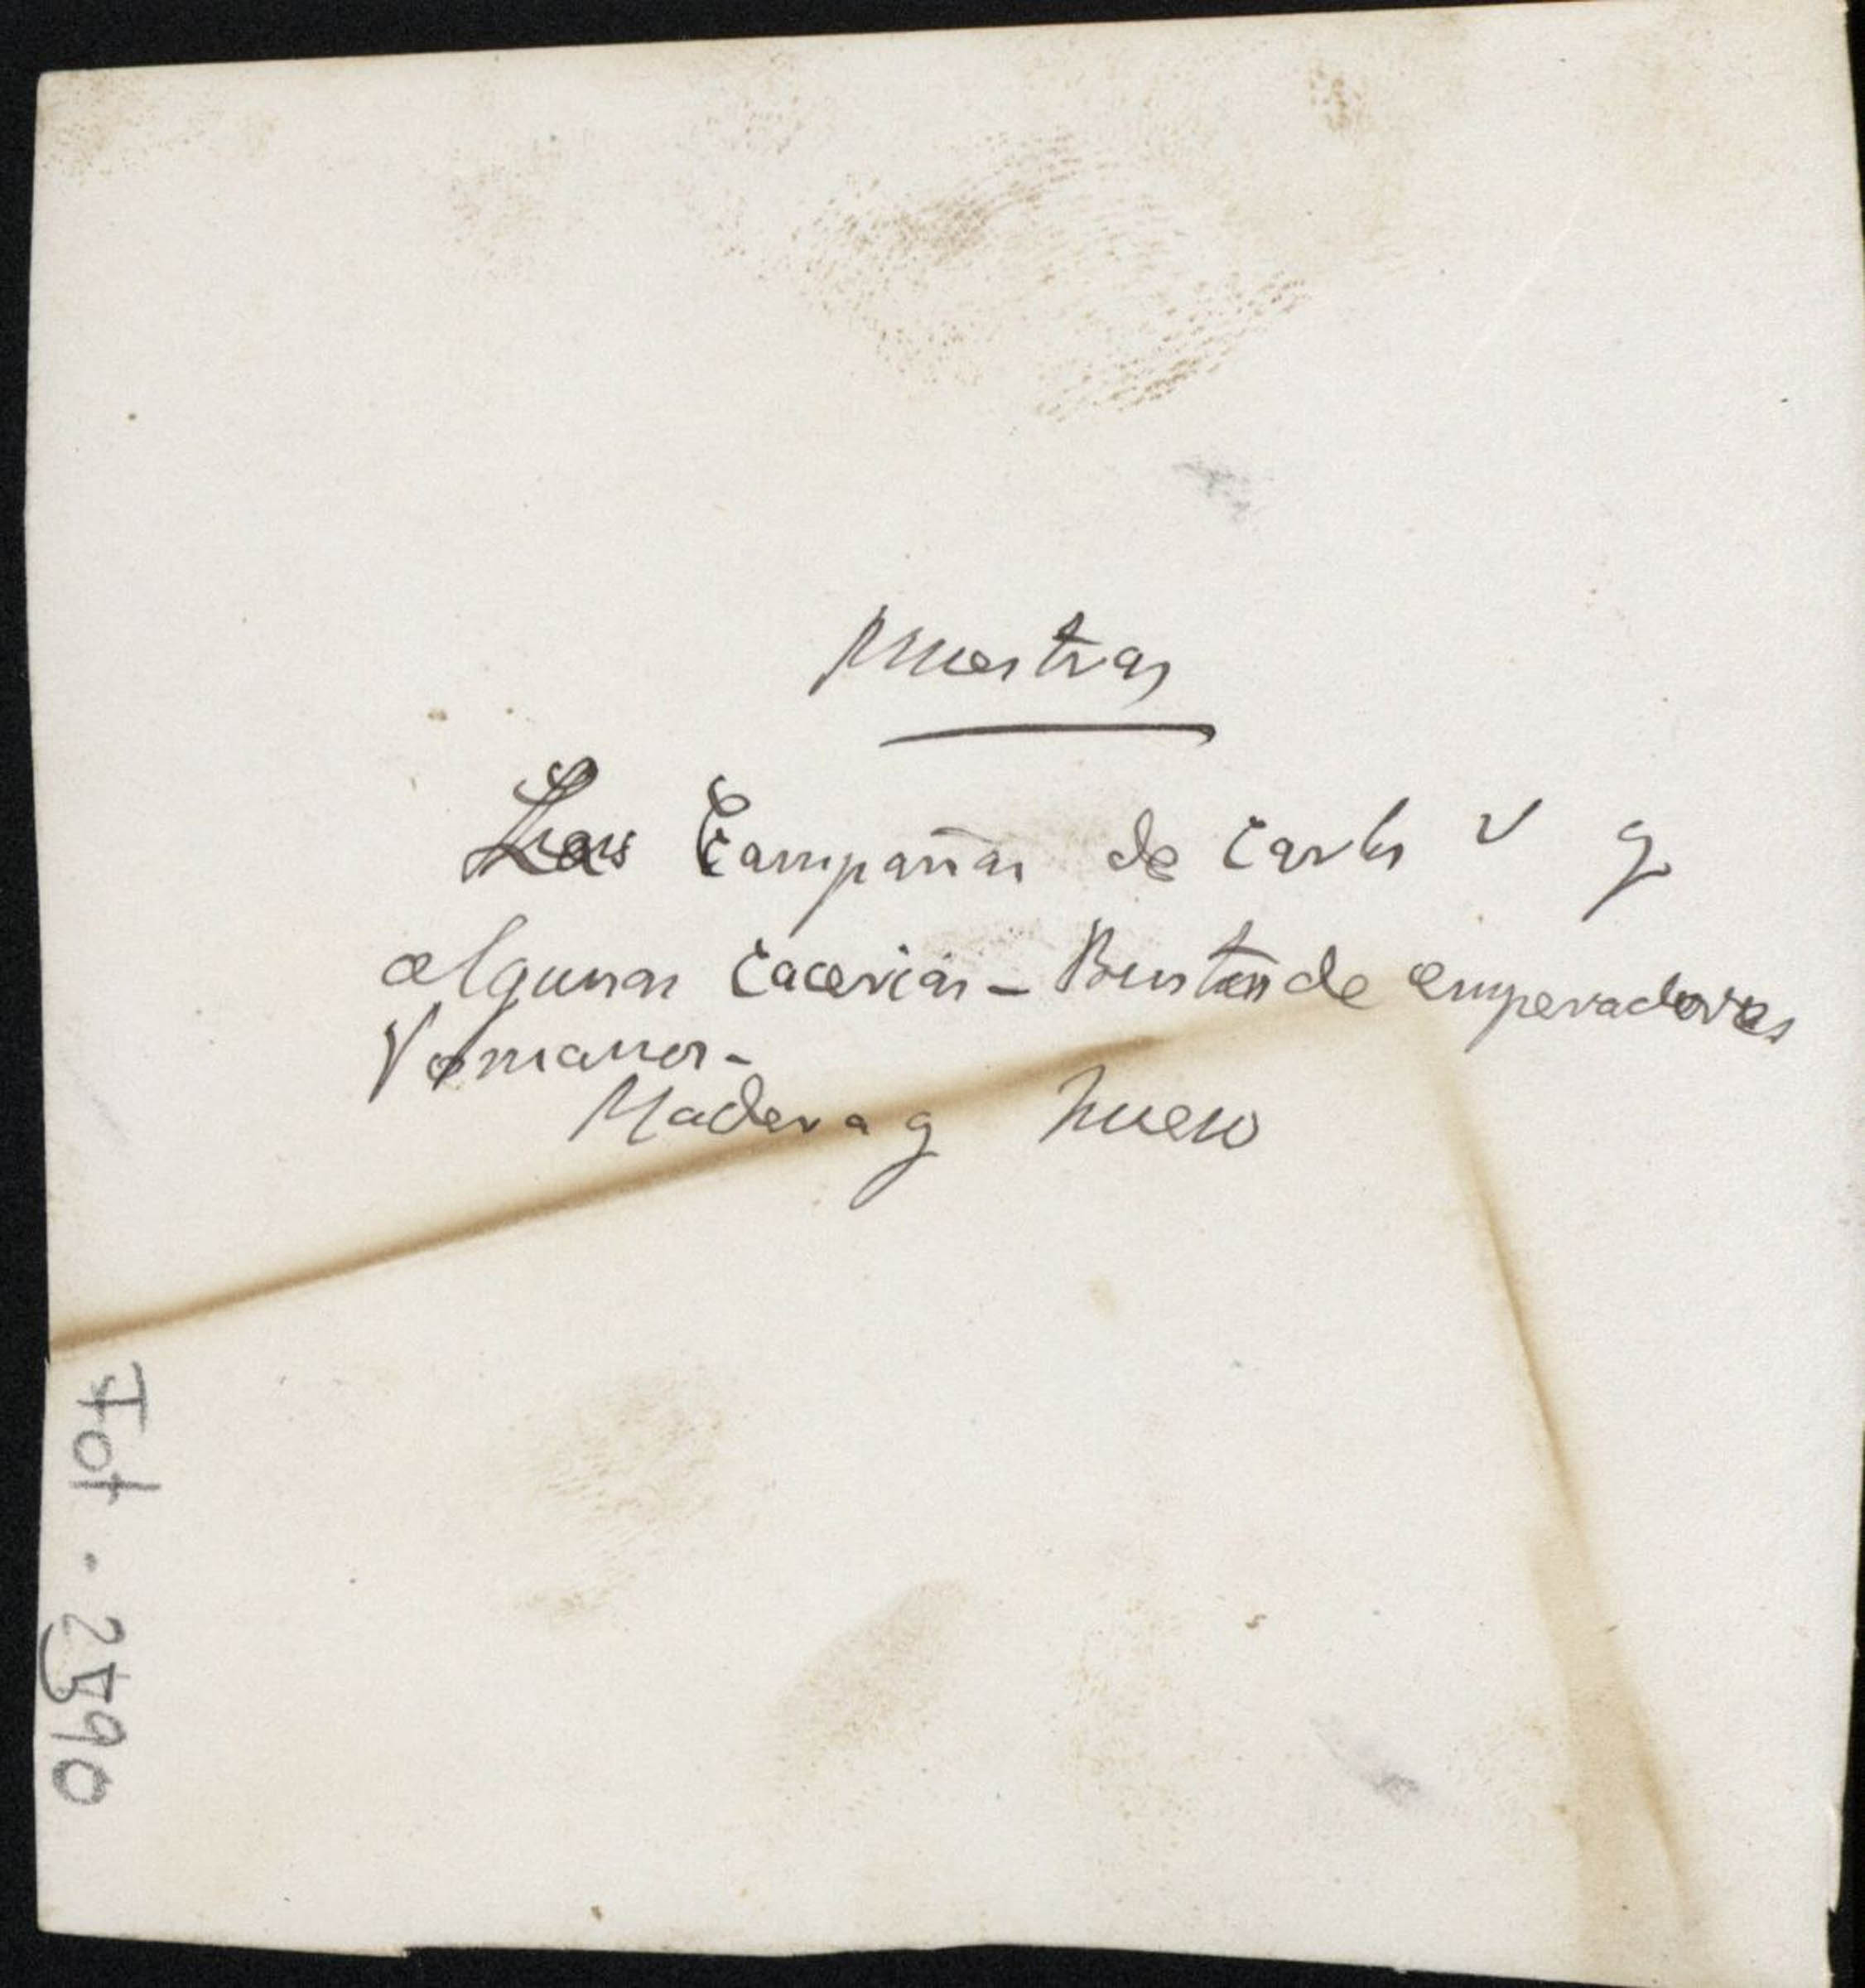 Muestras
Las Campañas de Carlos V y
algunas cacerias - Bustos de emperadores
romanos -
Madera y hueso
Fot. 2590